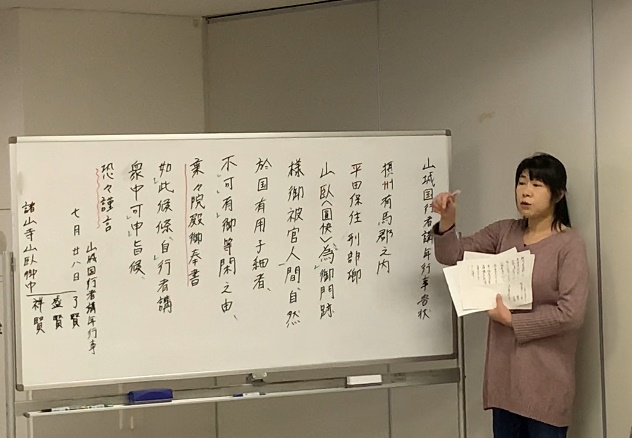 山城国行者講年行事書状
摂州有馬郡之内
平田保住刑部卿
山臥〈圓快〉為御門跡
様御被官人間、自然
於国有用子細者、
不可有御等閑之由、
乗々院殿御奉書
如此候條、自行者講
衆中可申旨候、
恐々謹言
山城国行者講年行事
七月廿八日 了賢
盛賢
祥賢
諸山寺山臥御中